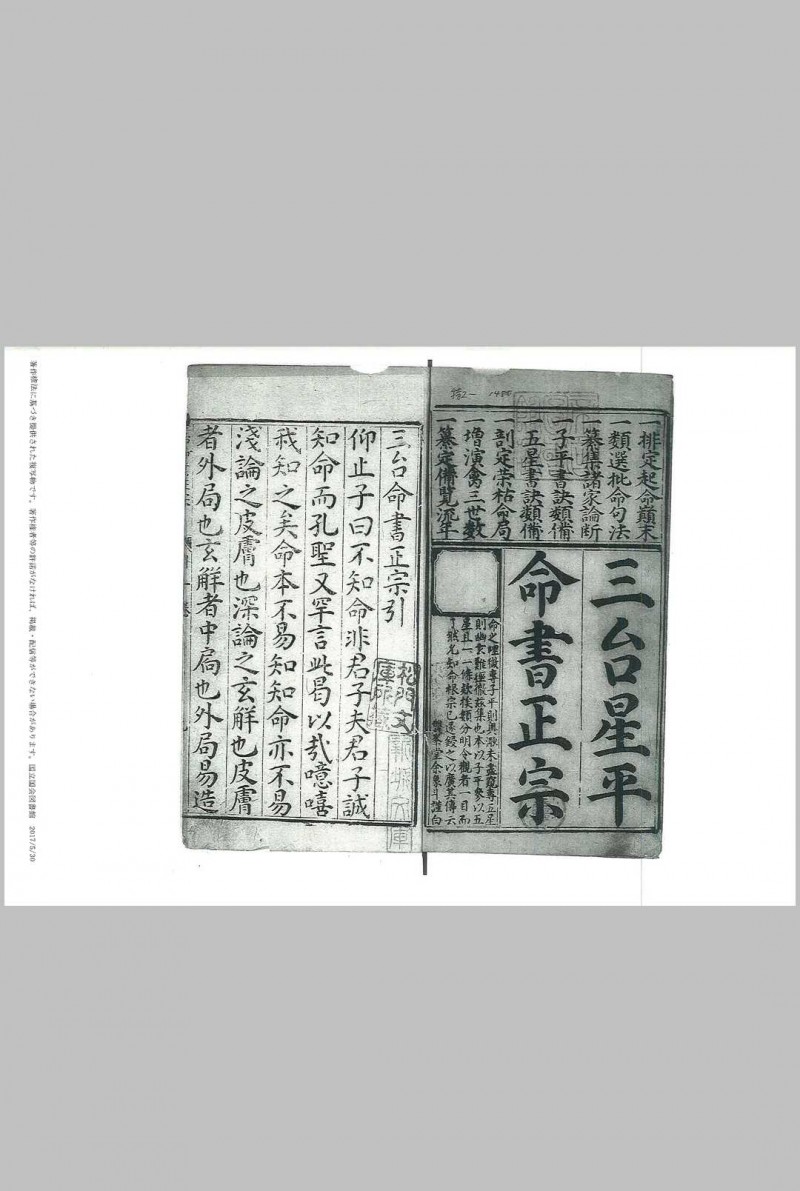 一排定起命巔末
一類選批命句法
一纂集諸家論斷
一子平書訣類備
一五星書訣類備
一剖定荣枯命局
一增演禽三世数
一纂定備覽流年
三台星平
命書正宗
命之理微專子平則奥淵未盡窺專五星
則幽玄難 兹集也本以子平參以五
星且一一條欵候類分明令觀者一目而
了然尤如命根宗已逐鋟之以廣其傳云
三台命書正宗引
仰止子曰不知命非君子夫君子誠
知命而孔聖又罕言此曷以㢤噫嘻
我知之矣命本不易知知命亦不易
淺論之皮膚也深論之玄解也皮膚
者外局也玄解者中扃也外局易造
著作権法に基づき提供された複写物です。著作権者等の許諾がなければ、掲載・配信等ができない場合があります。国立国会図書館 2017/5/30